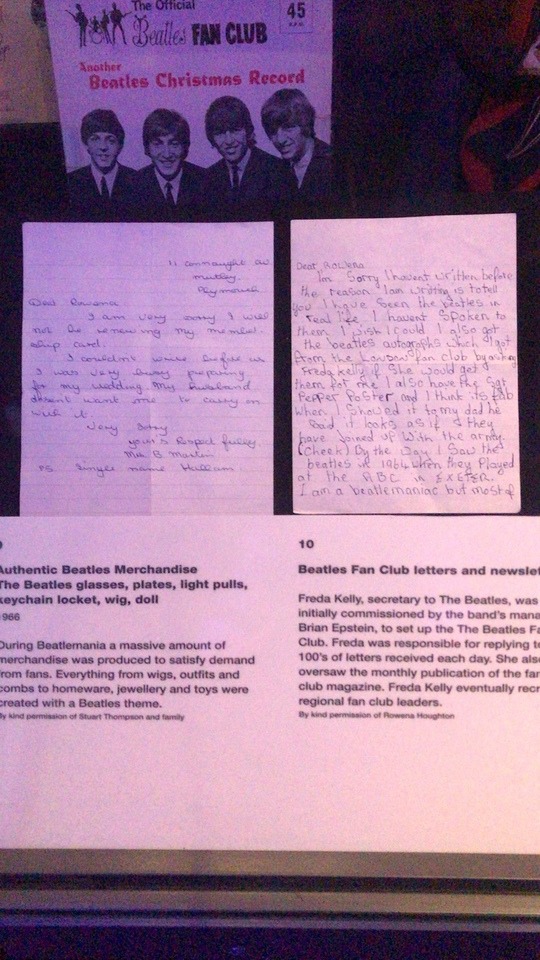 The Official
Beatles FAN CLUB
45
Another
Beatles Christmas Record
11 connaught av
mutley.
Plymouth
Dear Rowena
I am very sorry I will
not be renewing my member-
ship card.
I couldn't write before as
I was very busy preparing
for my wedding. My husband
doesnt want me to carry on
with it.
Very Sorry
your's Respectfully.
Mrs B Martin
PS Single name Hallam
Dear Rowena
I'm Sorry I havent written before
the reason I am writing is to tell
you I have seen the beatles in
real life. I havent spoken to
them. I wish I could. I also got
the beatles autographs which I got
from the London fan club by asking
Freda kelly if she would get
them for me I also have the Sgt
Pepper Poster and I think its fab
When I showed it to my dad he
said it looks as if they
have joined up with the army.
(Cheek) By the way I saw the
beatles in 1964 when they played
at the ABC in EXETER.
I am a beatlemaniac but most of
9
Authentic Beatles Merchandise
The Beatles glasses, plates, light pulls,
keychain locket, wig, doll
1966
During Beatlemania a massive amount of
merchandise was produced to satisfy demand
from fans. Everything from wigs, outfits and
combs to homeware, jewellery and toys were
created with a Beatles theme.
By kind permission of Stuart Thompson and family
10
Beatles Fan Club letters and newslet
Freda Kelly, secretary to The Beatles, was
initially commissioned by the band's mana
Brian Epstein, to set up the The Beatles Fa
Club. Freda was responsible for replying to
100's of letters received each day. She also
oversaw the monthly publication of the fan
club magazine. Freda Kelly eventually recr
regional fan club leaders.
By kind permission of Rowena Houghton